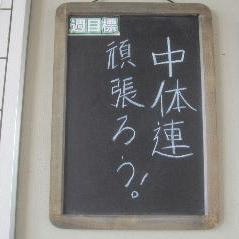 週目標
中体連
頑張ろう!